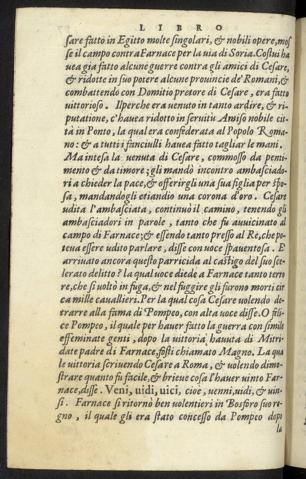 LIBRO
sare fatto in Egitto molte singolari, & nobili opere, mos
se il campo contra Farnace per la via di Soria. Costui ha
uea gia fatto alcune guerre contra gli amici di Cesare,
& ridotte in suo potere alcune prouincie de' Romani, &
combattendo con Domitio pretore di Cesare, era fatto
vittorioso. Il perche era venuto in tanto ardire, & ri-
putatione, c'hauea ridotto in seruitù Amiso nobile cit-
tà in Ponto, la qual era confederata al Popolo Roma-
no: & a tutti i fanciulli hauea fatto tagliar le mani.
Ma intesa la venuta di Cesare, commosso da penti-
mento & da timore; gli mandò incontro ambasciado-
ri a chieder la pace, & offerirgli una sua figlia per spo-
sa, mandandogli etiandio una corona d'oro. Cesare
udita l'ambasciata, continuò il camino, tenendo gli
ambasciadori in parole, tanto che fu auuicinato al
campo di Farnace; & essendo tanto presso al Re, che po-
teua essere udito parlare, disse con voce spauentosa. E
arriuato ancora questo parricida al castigo del suo sce-
lerato delitto? la qual uoce diede a Farnace tanto terro
re, che si uoltò in fuga, & nel fuggire gli furono morti cir
ca mille cauallieri. Per la qual cosa Cesare uolendo de-
trarre alla fama di Pompeo, con alta uoce disse. O feli-
ce Pompeo, il quale per hauer fatto la guerra con simile
effeminate genti, dopo la uittoria hauuta di Mitri-
date padre di Farnace, fosti chiamato Magno. La qua
le uittoria scriuendo Cesare a Roma, & uolendo dimo-
strare quanto fu facile, & brieue cosa l'hauer uinto Far-
nace, disse. Veni, uidi, uici, cioè, uenni, uidi, & uin-
si. Farnace si ritornò ben uolentieri in Bosforo suo re-
gno, il quale gli era stato concesso da Pompeo dopo
la